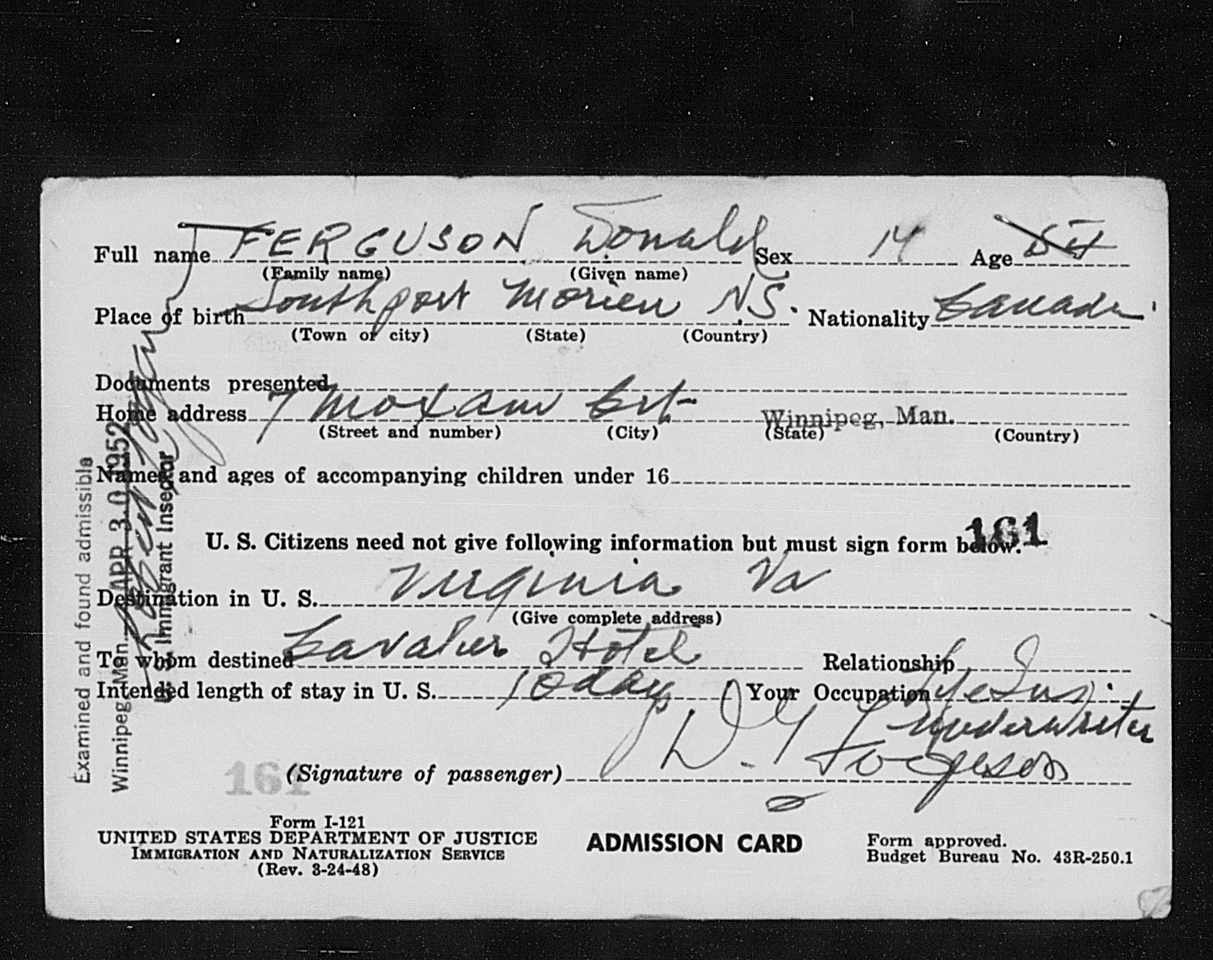 Full name FERGUSON Donald Sex M Age
(Family name) (Given name)
Place of birth Southport Morien N.S. Nationality Canada
(Town or city) (State) (Country)
Documents presented
Home address 7 Moxam Crt Winnipeg, Man.
(Street and number) (City) (State) (Country)
Names and ages of accompanying children under 16
U. S. Citizens need not give following information but must sign form below. 161
Destination in U. S. Virginia Va
(Give complete address)
To whom destined Cavalier Hotel Relationship
Intended length of stay in U. S. 10 days Your Occupation Life Ins.
Underwriter
161 (Signature of passenger) D. Ferguson
Form I-121
UNITED STATES DEPARTMENT OF JUSTICE ADMISSION CARD Form approved.
IMMIGRATION AND NATURALIZATION SERVICE Budget Bureau No. 43R-250.1
(Rev. 3-24-48)
Examined and found admissible
Winnipeg, Man. APR 30 1952
Immigrant Inspector